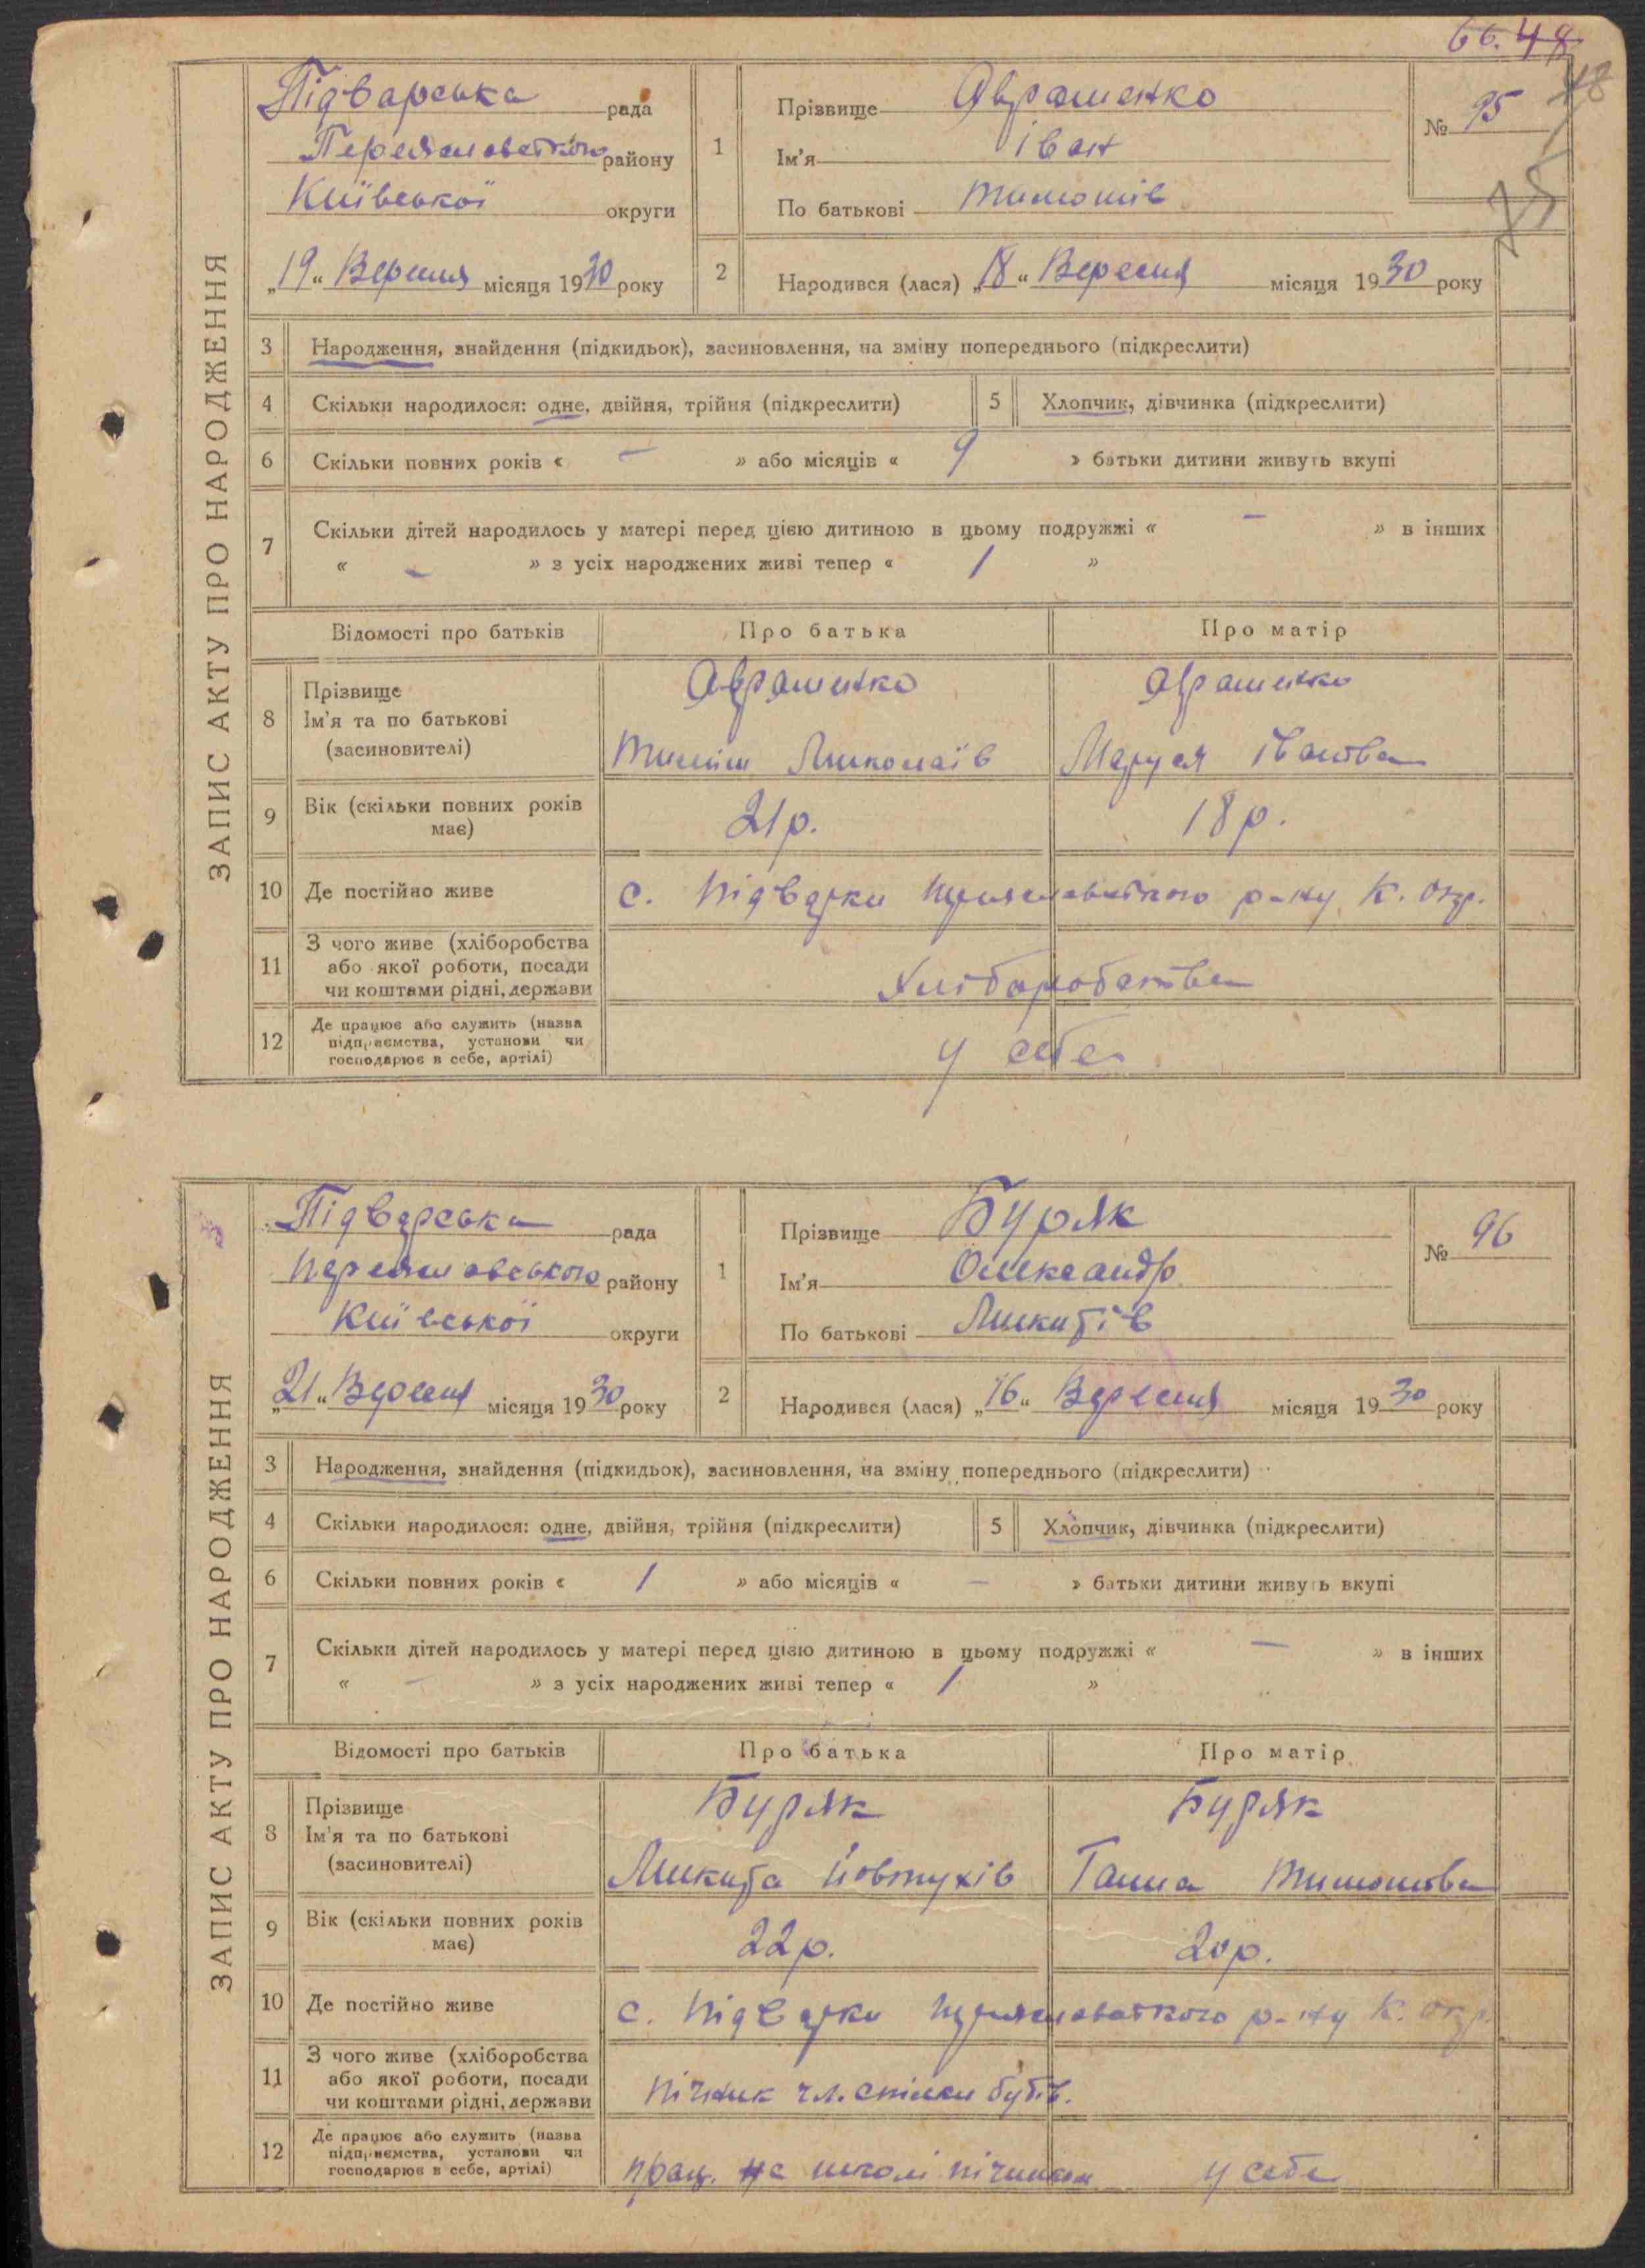 66. 48
48
75
ЗАПИС АКТУ ПРО НАРОДЖЕННЯ
Підварська рада
Переяславського району
Київської округи
„19“ Вересня місяця 1930 року
1 Прізвище Аврашенко
Ім'я Іван
По батькові Тимошів
№ 95
2 Народився (лася) „18“ Вересня місяця 1930 року
3 Народження, знайдення (підкидьок), засиновлення, на зміну попереднього (підкреслити)
4 Скільки народилося: одне, двійня, трійня (підкреслити)
5 Хлопчик, дівчинка (підкреслити)
6 Скільки повних років « – » або місяців « 9 » батьки дитини живуть вкупі
7 Скільки дітей народилось у матері перед цією дитиною в цьому подружжі « – » в інших
« – » з усіх народжених живі тепер « 1 »
Відомості про батьків Про батька Про матір
8 Прізвище
Ім'я та по батькові
(засиновителі)
Аврашенко Аврашенко
Тиміш Миколаїв Маруся Іванівна
9 Вік (скільки повних років
має)
21р. 18р.
10 Де постійно живе с. Підварки Переяславського р-ну К. Окр.
11 З чого живе (хліборобства
або якої роботи, посади
чи коштами рідні, держави
Хліборобства
12 Де працює або служить (назва
підприємства, установи чи
господарює в себе, артілі)
у себе
ЗАПИС АКТУ ПРО НАРОДЖЕННЯ
Підварська рада
Переяславського району
Київської округи
„21“ Вересня місяця 1930 року
1 Прізвище Буряк
Ім'я Олександр
По батькові Микитів
№ 96
2 Народився (лася) „16“ Вересня місяця 1930 року
3 Народження, знайдення (підкидьок), засиновлення, на зміну попереднього (підкреслити)
4 Скільки народилося: одне, двійня, трійня (підкреслити)
5 Хлопчик, дівчинка (підкреслити)
6 Скільки повних років « 1 » або місяців « – » батьки дитини живуть вкупі
7 Скільки дітей народилось у матері перед цією дитиною в цьому подружжі « – » в інших
« – » з усіх народжених живі тепер « 1 »
Відомості про батьків Про батька Про матір
8 Прізвище
Ім'я та по батькові
(засиновителі)
Буряк Буряк
Микита Йовтухів Ганна Тимошівна
9 Вік (скільки повних років
має)
22р. 20р.
10 Де постійно живе с. Підварки Переяславського р-ну К. окр.
11 З чого живе (хліборобства
або якої роботи, посади
чи коштами рідні, держави
пічник чл. спілки будів.
12 Де працює або служить (назва
підприємства, установи чи
господарює в себе, артілі)
прац. на школі пічником у себе